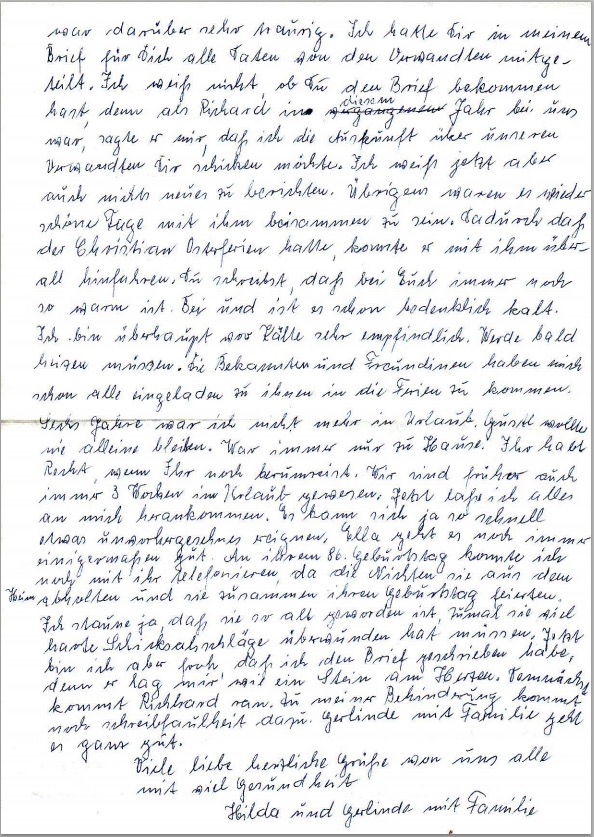 war darüber sehr traurig. Ich hatte Dir in meinem
Brief für Dich alle Daten von den Verwandten mitge-
teilt. Ich weiß nicht, ob Du den Brief bekommen
hast denn als Richard in diesem Jahr bei uns
war, sagte er mir, daß ich die Auskunft über unseren
Verwandten Dir schicken möchte. Ich weiß jetzt aber
auch nichts neues zu berichten. Übrigens waren es wieder
schöne Tage mit ihm beisammen zu sein. Dadurch daß
der Christian Osterferien hatte, konnte er mit ihm über-
all hinfahren. Du schreibst, daß bei Euch immer noch
so warm ist. Bei und ist es schon bedenklich kalt.
Ich bin überhaupt vor Kälte sehr empfindlich. Werde bald
heizen müssen. Die Bekannten und Freundinen haben mich
schon alle eingeladen zu ihnen in die Ferien zu kommen.
Sechs Jahre war ich nicht mehr in Urlaub. Gustl wollte
nie alleine bleiben. War immer nur zu Hause. Ihr habt
Recht, wenn Ihr noch herumreist. Wir sind früher auch
immer 3 Wochen im Urlaub gewesen. Jetzt laße ich alles
an mich herankommen. Es kann sich ja so schnell
etwas unvorhergesehnes ereignen. Ella geht es noch immer
einigermaßen gut. An ihrem 86. Geburtstag konnte ich
noch mit ihr telefonieren, da die Nichten sie aus dem
Heim abholten und sie zusammen ihren Geburtstag feierten.
Ich staune ja, daß sie so alt geworden ist, zumal sie viel
harte Schicksalschläge überwunden hat müssen. Jetzt
bin ich aber froh, daß ich den Brief geschrieben habe,
denn er lag mir wie ein Stein am Herzen. Demnächst
kommt Richhard ran. Zu meiner Behinderung kommt
noch schreibfaulheit dazu. Gerlinde mit Familie geht
es ganz gut.
Viele liebe herzliche Grüße von uns alle
mit viel Gesundheit
Hilda und Gerlinde mit Familie